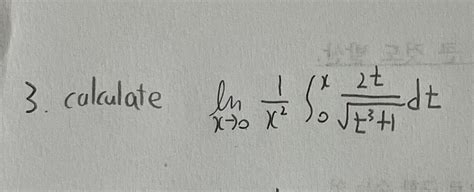 3. calculate lim x→0 1/x² ∫₀ˣ 2t/√(t³+1) dt